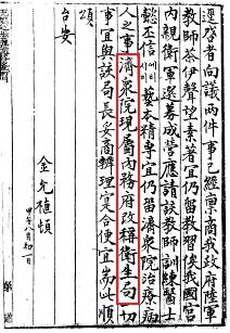 逕啓者向議兩件事已經稟商我政府陸軍
教師茶伊聲望素著宜仍留教習俟我國宮
內親衛軍選募成營應請該教師訓練醫士
丕信藝本精專宜仍留濟衆院治療病
人之事濟衆院現屬內務府改稱衛生局一切
事宜與該局長妥商辦理寔合便宜耑此順
頌
台安
金允植頓
甲午八月初一日